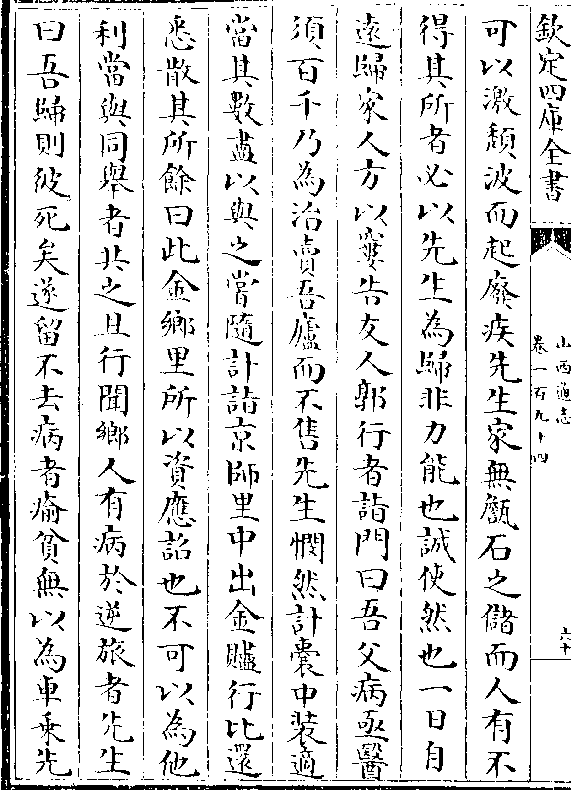 欽定四庫全書
山西通志
卷一百九十四
六十
可以激頽波而起廢疾先生家無甔石之儲而人有不
得其所者必以先生為歸非力能也誠使然也一日自
遠歸家人方以窶告友人郭行者詣門曰吾父病亟醫
須百千乃為治賣吾廬而不售先生憫然計囊中装適
當其數盡以與之嘗隨計詣京師里中出金贐行比還
悉散其所餘曰此金鄉里所以資應詔也不可以為他
利當與同舉者共之且行聞鄉人有病於逆旅者先生
曰吾歸則彼死矣遂留不去病者瘉貧無以為車乗先